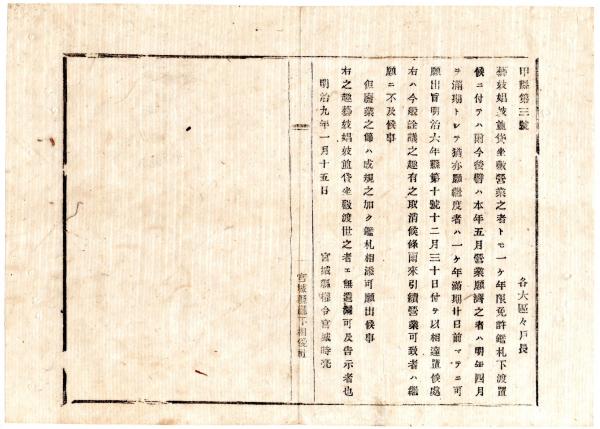 甲縣第三號
各大區々戸長
藝妓娼妓並貸坐敷營業之者トモ一ケ年限免許鑑札下渡置
候ニ付テハ爾今後譬ハ本年五月營業願濟之者ハ明年四月
ヲ滿期トシテ猶亦願繼度者ハ一ケ年滿期廿日前マテニ可
願出旨明治六年縣第十號十二月三十日付ヲ以相達置候處
右ハ今般詮議之趣有之取消候條爾來引續營業可致者ハ繼
願ニ不及候事
但廢業之節ハ成規之如ク鑑札相添可願出候事
右之趣藝妓娼妓並貸坐敷渡世之者エ無遺漏可及告示者也
明治九年一月十五日
宮城縣權令宮城時亮
宮城縣廳下相傳